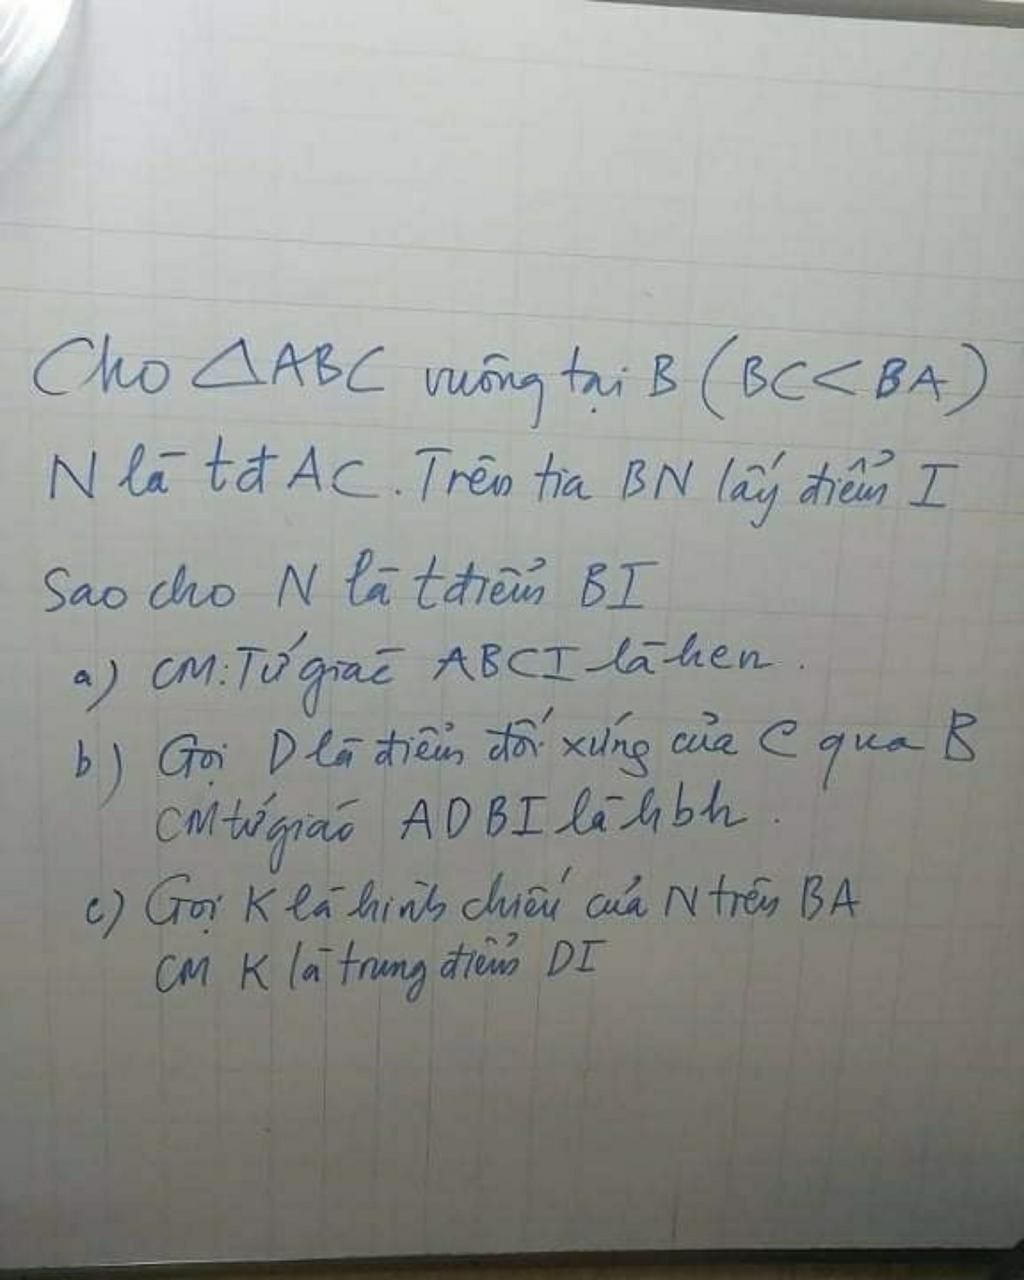 Cho △ABC vuông tại B (BC < BA)
N là tđ AC. Trên tia BN lấy điểm I
Sao cho N là tđiểm BI
a) CM: Tứ giác ABCI là hcn.
b) Gọi D là điểm đối xứng của C qua B
CM tứ giác ADBI là hbh.
c) Gọi K là hình chiếu của N trên BA
CM K là trung điểm DI